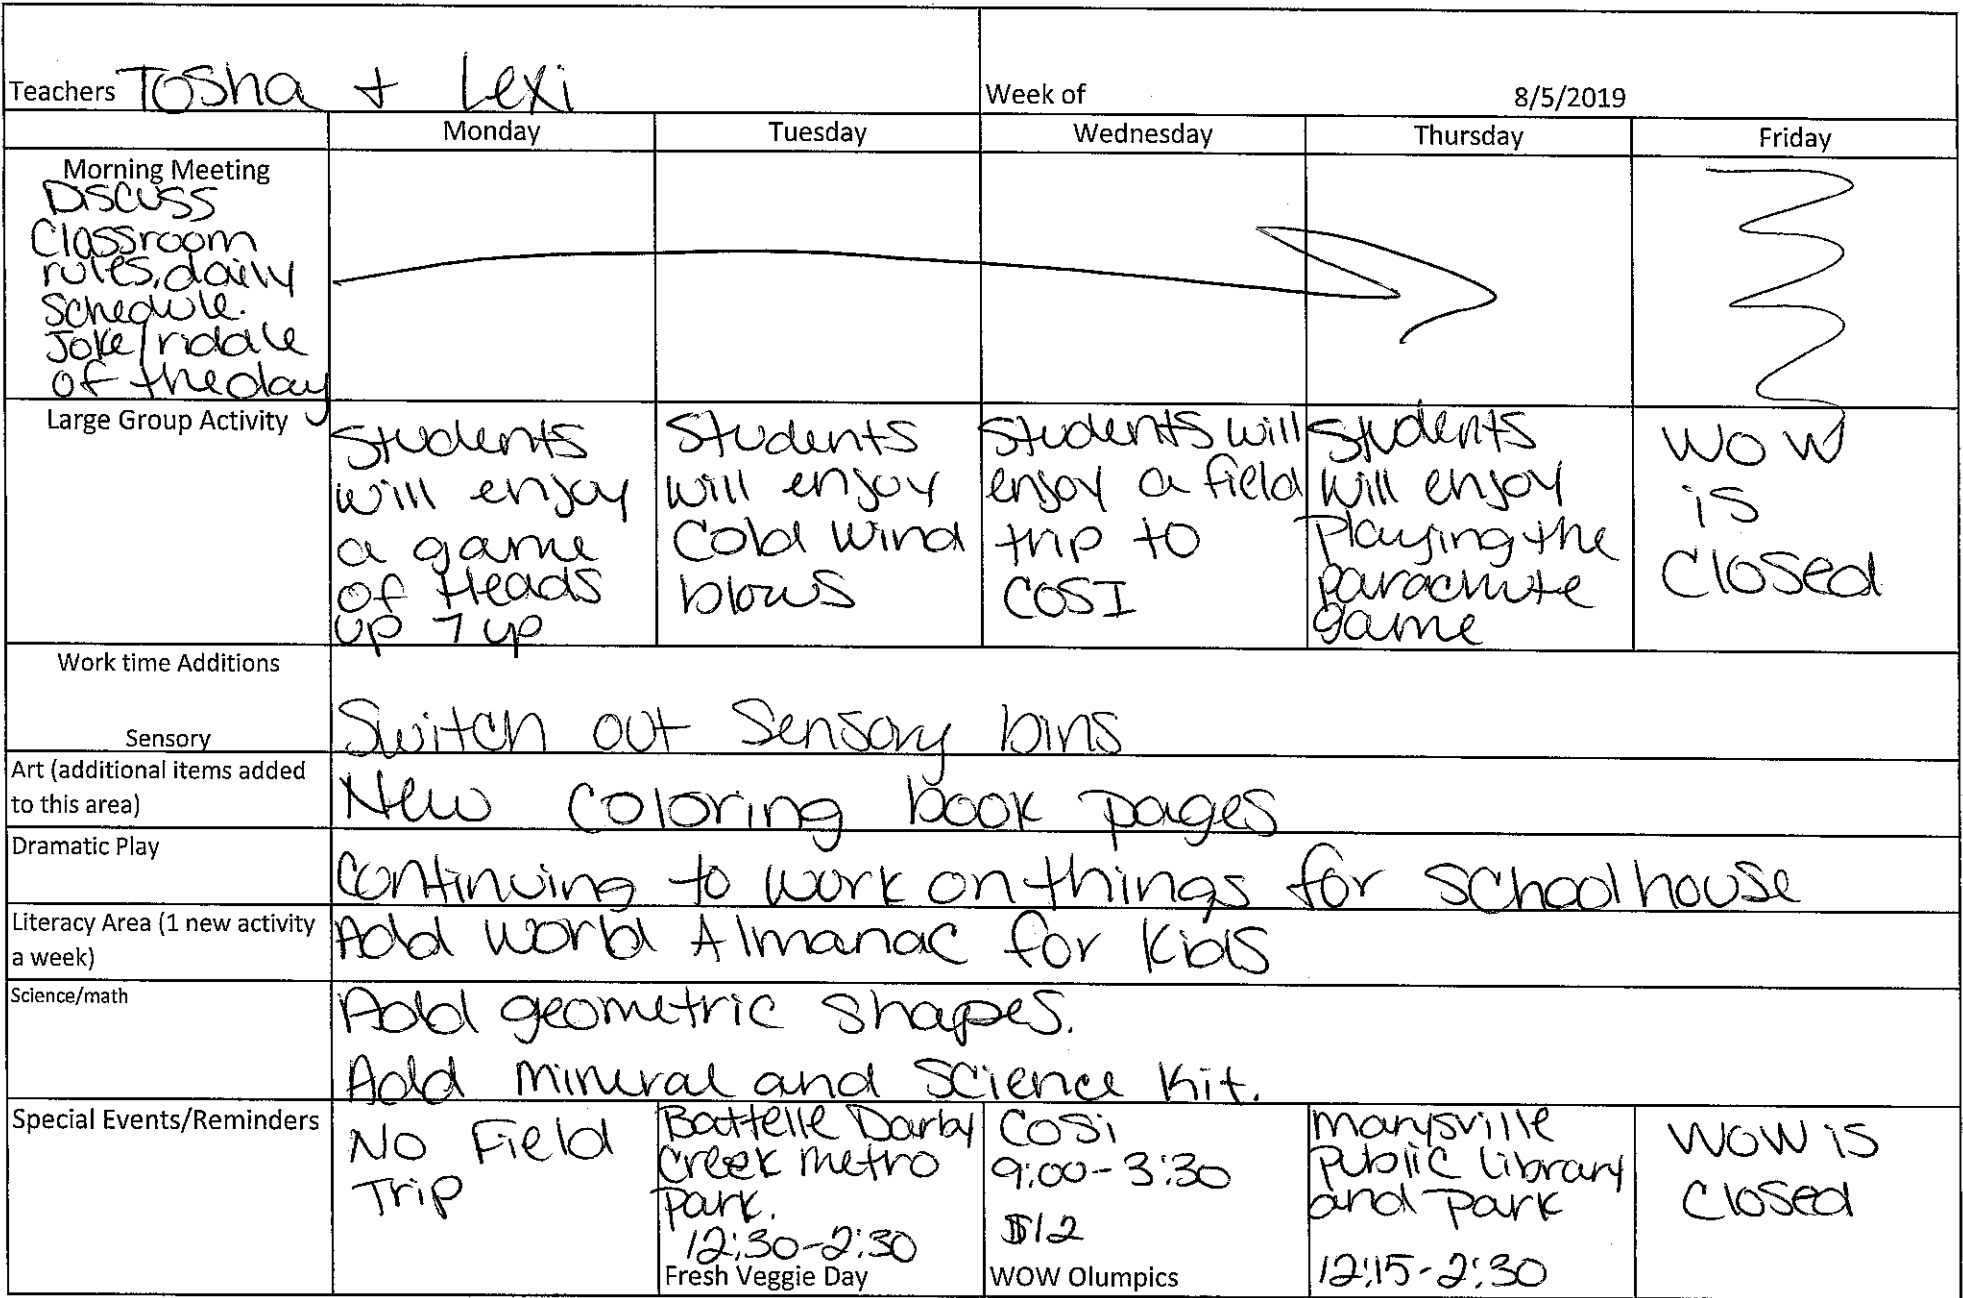 Teachers Tosha + Lexi
Week of 8/5/2019
Monday Tuesday Wednesday Thursday Friday
Morning Meeting
Discuss
Classroom
rules, daily
schedule.
Joke/riddle
of the day
Large Group Activity
Students
will enjoy
a game
of Heads
up 7 up
Students
will enjoy
Cold Wind
blows
Students will
enjoy a field
trip to
COSI
Students
will enjoy
Playing the
parachute
game
WOW
is
Closed
Work time Additions
Sensory
Switch out Sensory bins
Art (additional items added
to this area)
New coloring book pages
Dramatic Play
Continuing to work on things for schoolhouse
Literacy Area (1 new activity
a week)
Add World Almanac for Kids
Science/math
Add geometric shapes.
Add mineral and science kit.
Special Events/Reminders
No Field
Trip
Battelle Darby
Creek metro
park.
12:30-2:30
Fresh Veggie Day
COSi
9:00-3:30
$12
WOW Olumpics
Marysville
Public Library
and Park
12:15-2:30
WOW is
Closed